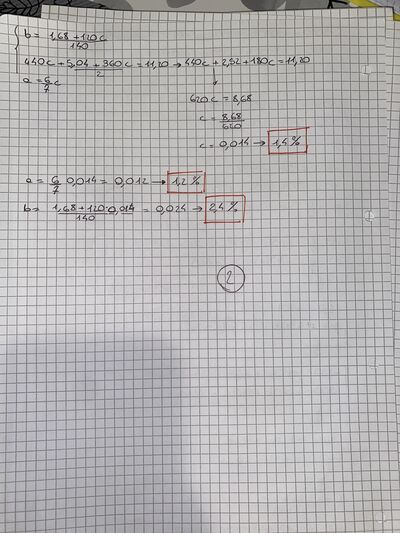 b = 1,68 + 120c / 140
440c + 5,04 + 360c / 2 = 11,20 → 440c + 2,52 + 180c = 11,20
a = 6/7 c
620c = 8,68
c = 8,68 / 620
c = 0,014 → 1,4 %
a = 6/7 0,014 = 0,012 → 1,2 %
b = 1,68 + 120·0,014 / 140 = 0,024 → 2,4 %
2